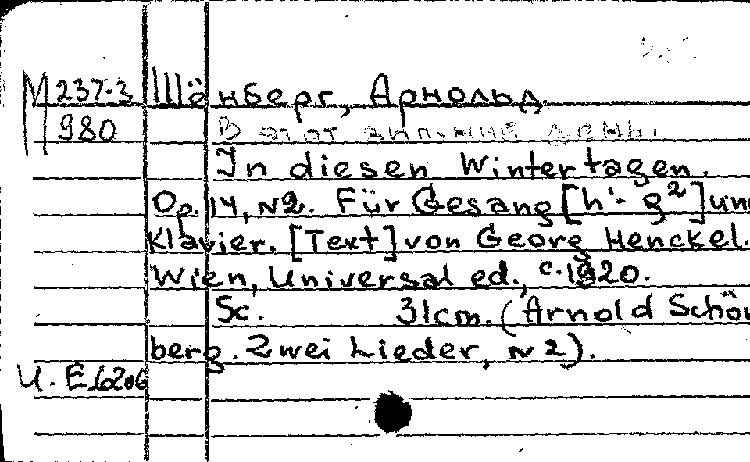 М 237-3 Шёнберг, Арнольд
980 В этот зимний день.
In diesen Wintertagen.
Op. 14, N2. Für Gesang [h'- g²] un
Klavier. [Text] von Georg Henckel.
Wien, Universal ed., c. 1920.
Sc. 31cm. (Arnold Schön
berg. Zwei Lieder, N 2).
U. E. 6206